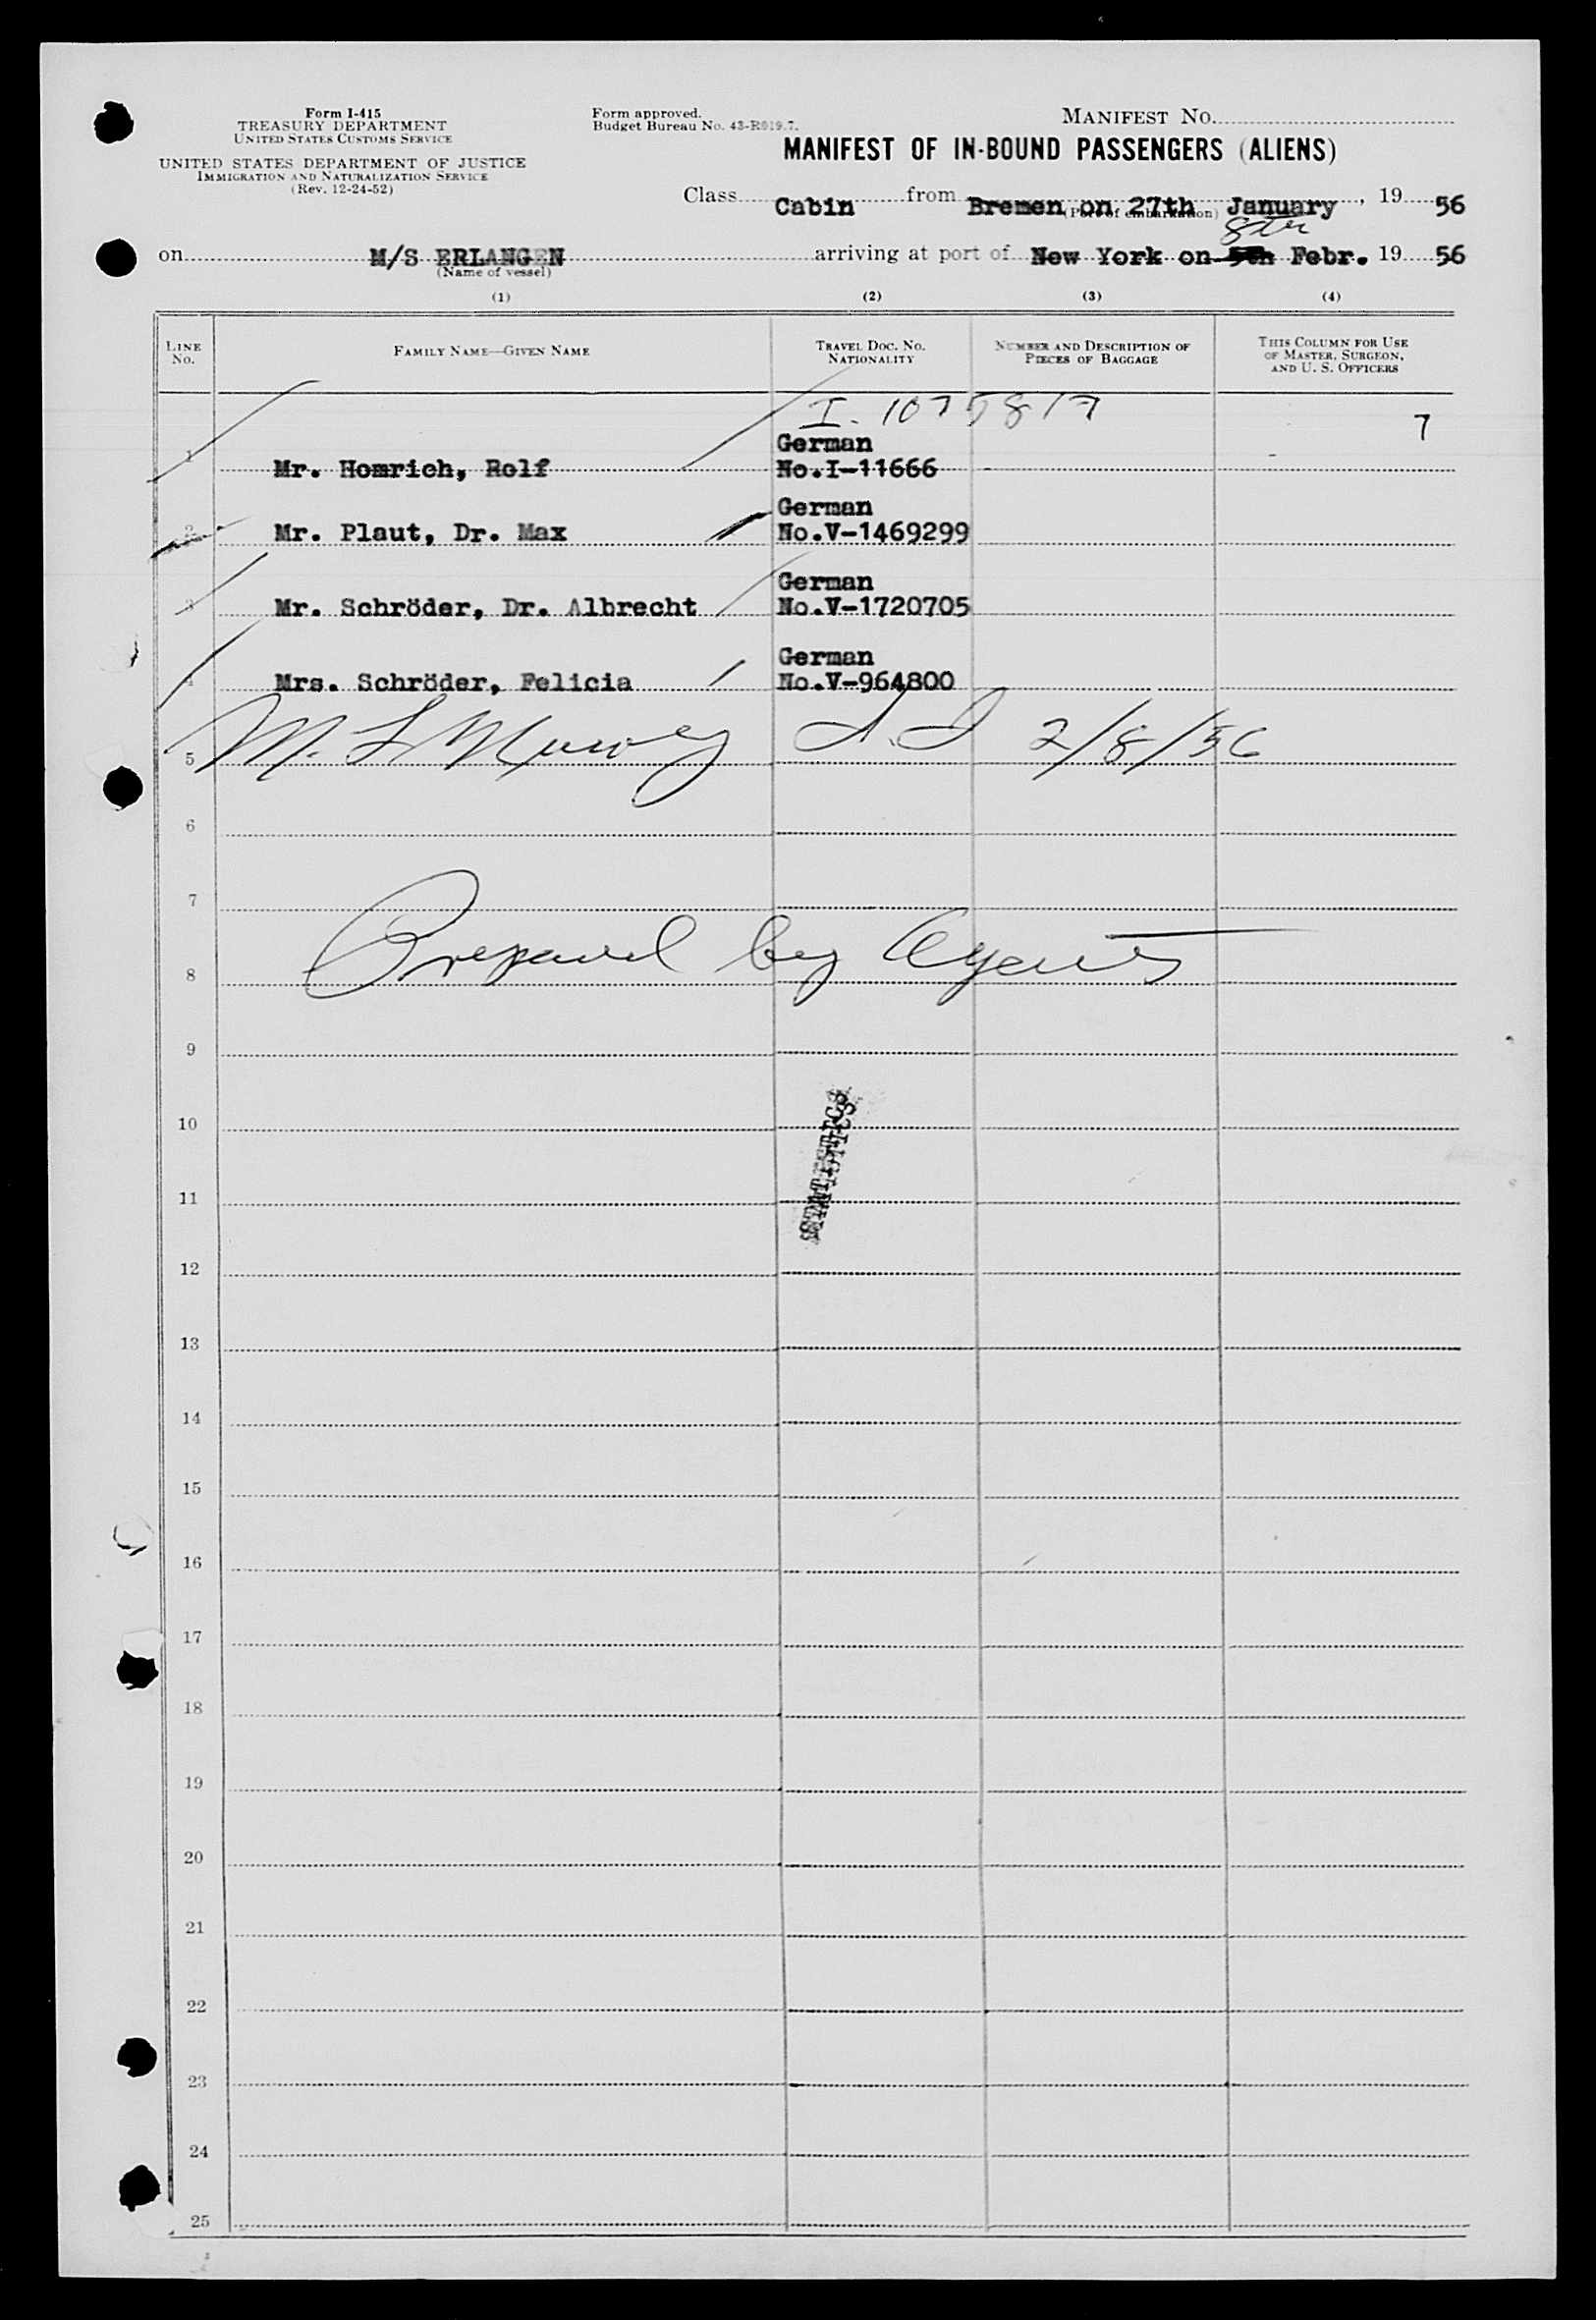 Form I-415
TREASURY DEPARTMENT
UNITED STATES CUSTOMS SERVICE
UNITED STATES DEPARTMENT OF JUSTICE
IMMIGRATION AND NATURALIZATION SERVICE
(Rev. 12-24-52)
Form approved.
Budget Bureau No. 43-R019.7.
MANIFEST NO.
MANIFEST OF IN-BOUND PASSENGERS (ALIENS)
Class Cabin from Bremen on 27th January, 19 56
(Port of embarkation)
8th
on M/S ERLANGEN arriving at port of New York on 5th Febr. 19 56
(Name of vessel)
(1) (2) (3) (4)
LINE No. FAMILY NAME—GIVEN NAME TRAVEL DOC. NO. NATIONALITY NUMBER AND DESCRIPTION OF PIECES OF BAGGAGE THIS COLUMN FOR USE OF MASTER, SURGEON, AND U. S. OFFICERS
I. 1075817 7
German
1 Mr. Homrich, Rolf No.I-11666
German
2 Mr. Plaut, Dr. Max No.V-1469299
German
3 Mr. Schröder, Dr. Albrecht No.V-1720705
German
4 Mrs. Schröder, Felicia No.V-964800
5 2/8/56
6
7
Prepared by Agents
8
9
10
STATISTICS
11
12
13
14
15
16
17
18
19
20
21
22
23
24
25